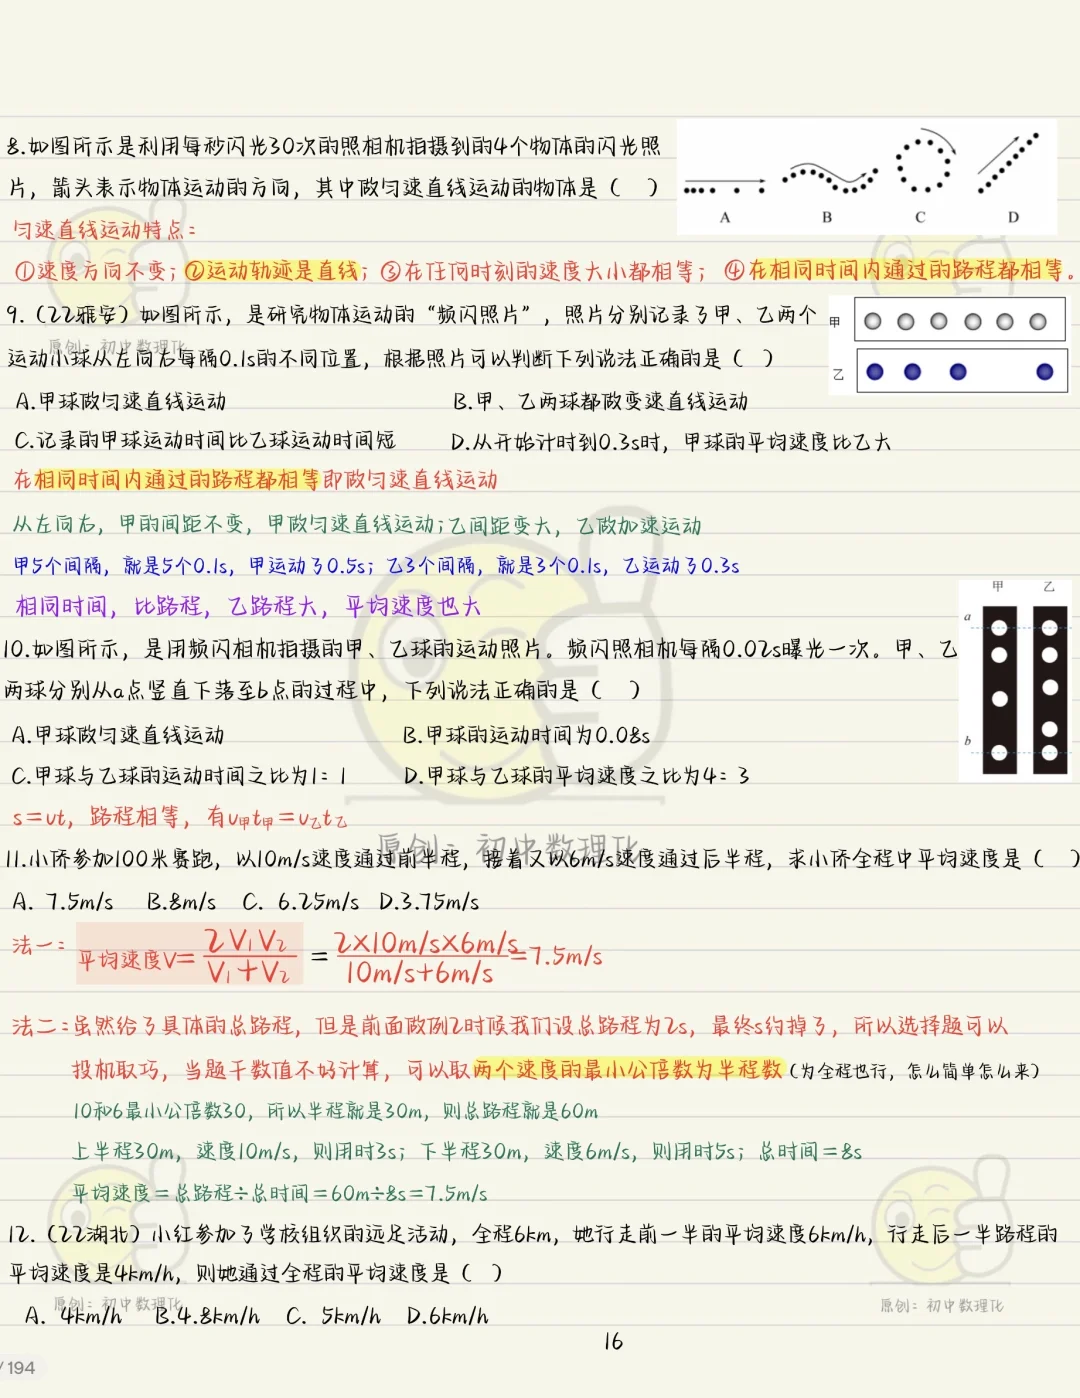 8.如图所示是利用每秒闪光30次的照相机拍摄到的4个物体的闪光照
片，箭头表示物体运动的方向，其中做匀速直线运动的物体是（　）
A B C D
匀速直线运动特点：
①速度方向不变；②运动轨迹是直线；③在任何时刻的速度大小都相等；④在相同时间内通过的路程都相等。
9.（22雅安）如图所示，是研究物体运动的“频闪照片”，照片分别记录了甲、乙两个
运动小球从左向右每隔0.1s的不同位置，根据照片可以判断下列说法正确的是（　）
甲
乙
A.甲球做匀速直线运动 B.甲、乙两球都做变速直线运动
C.记录的甲球运动时间比乙球运动时间短 D.从开始计时到0.3s时，甲球的平均速度比乙大
在相同时间内通过的路程都相等即做匀速直线运动
从左向右，甲的间距不变，甲做匀速直线运动；乙间距变大，乙做加速运动
甲5个间隔，就是5个0.1s，甲运动了0.5s；乙3个间隔，就是3个0.1s，乙运动了0.3s
相同时间，比路程，乙路程大，平均速度也大
甲 乙
a
b
10.如图所示，是用频闪相机拍摄的甲、乙球的运动照片。频闪照相机每隔0.02s曝光一次。甲、乙
两球分别从a点竖直下落至b点的过程中，下列说法正确的是（　）
A.甲球做匀速直线运动 B.甲球的运动时间为0.08s
C.甲球与乙球的运动时间之比为1：1 D.甲球与乙球的平均速度之比为4：3
s=vt，路程相等，有v甲t甲=v乙t乙
11.小侨参加100米赛跑，以10m/s速度通过前半程，接着又以6m/s速度通过后半程，求小侨全程中平均速度是（　）
A. 7.5m/s B.8m/s C. 6.25m/s D.3.75m/s
法一：平均速度V=2V₁V₂/(V₁+V₂)=2×10m/s×6m/s/(10m/s+6m/s)=7.5m/s
法二：虽然给了具体的总路程，但是前面做例2时候我们设总路程为2s，最终s约掉了，所以选择题可以
投机取巧，当题干数值不好计算，可以取两个速度的最小公倍数为半程数（为全程也行，怎么简单怎么来）
10和6最小公倍数30，所以半程就是30m，则总路程就是60m
上半程30m，速度10m/s，则用时3s；下半程30m，速度6m/s，则用时5s；总时间=8s
平均速度=总路程÷总时间=60m÷8s=7.5m/s
12.（22湖北）小红参加了学校组织的远足活动，全程6km，她行走前一半的平均速度6km/h，行走后一半路程的
平均速度是4km/h，则她通过全程的平均速度是（　）
A. 4km/h B.4.8km/h C. 5km/h D.6km/h
16
/194
原创：初中数理化
原创：初中数理化
原创：初中数理化
原创：初中数理化